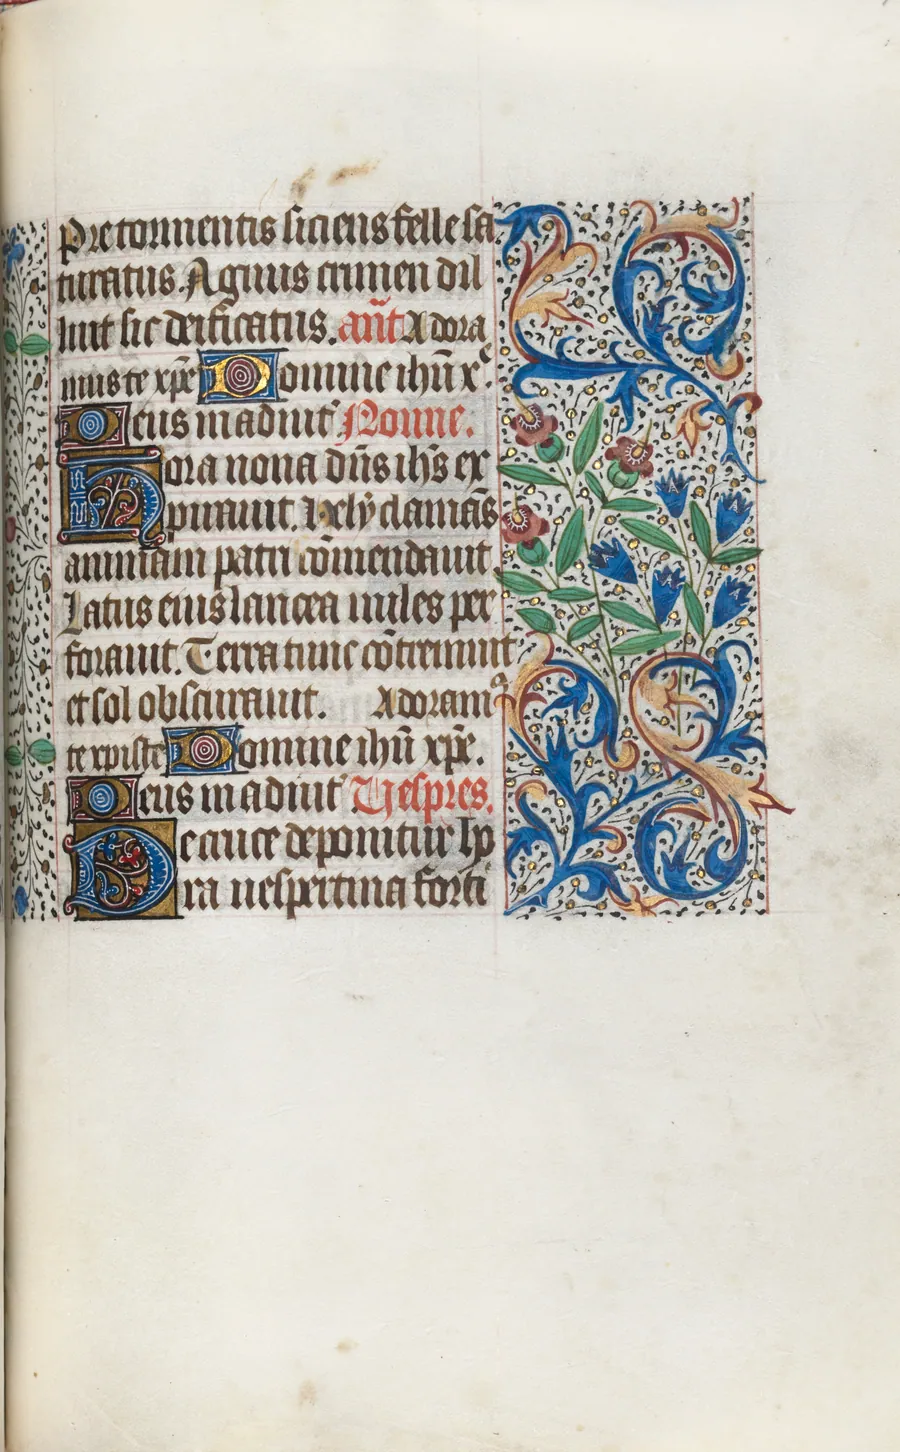 Pre tormentis siciens felle sa
turatus. Agnus crimen dil
luit sic deificatus. añt Adora
mus te xp̃e Domine ihũ xᵉ.
Deus in adiuit̃ Nonne.
Hora nona dñs ihs̃ ex
pirauit. Hely clamãs
animam patri cõmendauit.
Latus eius lancea miles per
forauit. Terra tunc cõtremuit
et sol obscurauit. Adoramꝰ
te xpiste Domine ihũ xp̃e.
Deus in adiuit̃ Vespres.
De cruce deponitur hp
ra uespertina forti